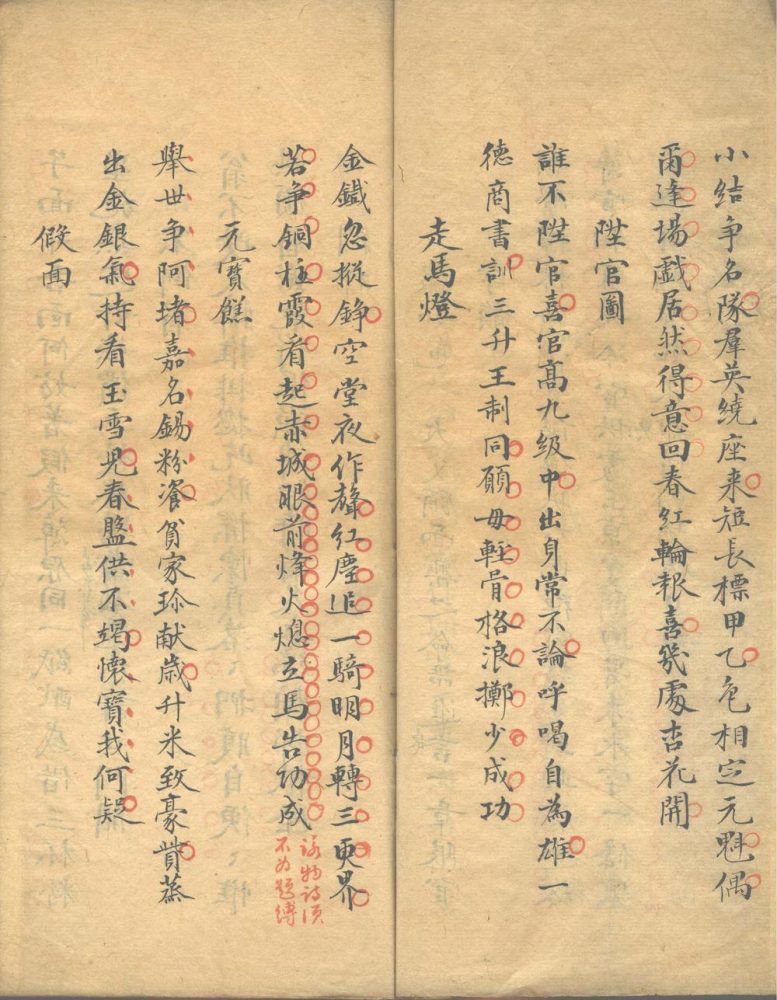 小結争名隊羣英繞座来短長標甲乙色相定元魁偶
爾達場戲居然得意回春紅輪報喜幾處杏花開
陞官圖
誰不陞官喜官髙九級中出身常不論呼喝自為雄一
德商書訓三升王制同願毋輕骨格浪擲少成功
走馬燈
金鐡忽摐錚空堂夜作聲紅塵追一騎明月轉三更界
若争銅柱霞看起赤城眼前烽火熄立馬告功成
詠物詩須
不為題縛
元寶餻
舉世争阿堵嘉名錫粉餈貧家珍献歳升米致豪貲蒸
出金銀氣持看玉雪皃春盤供不竭懷寳我何疑
假面